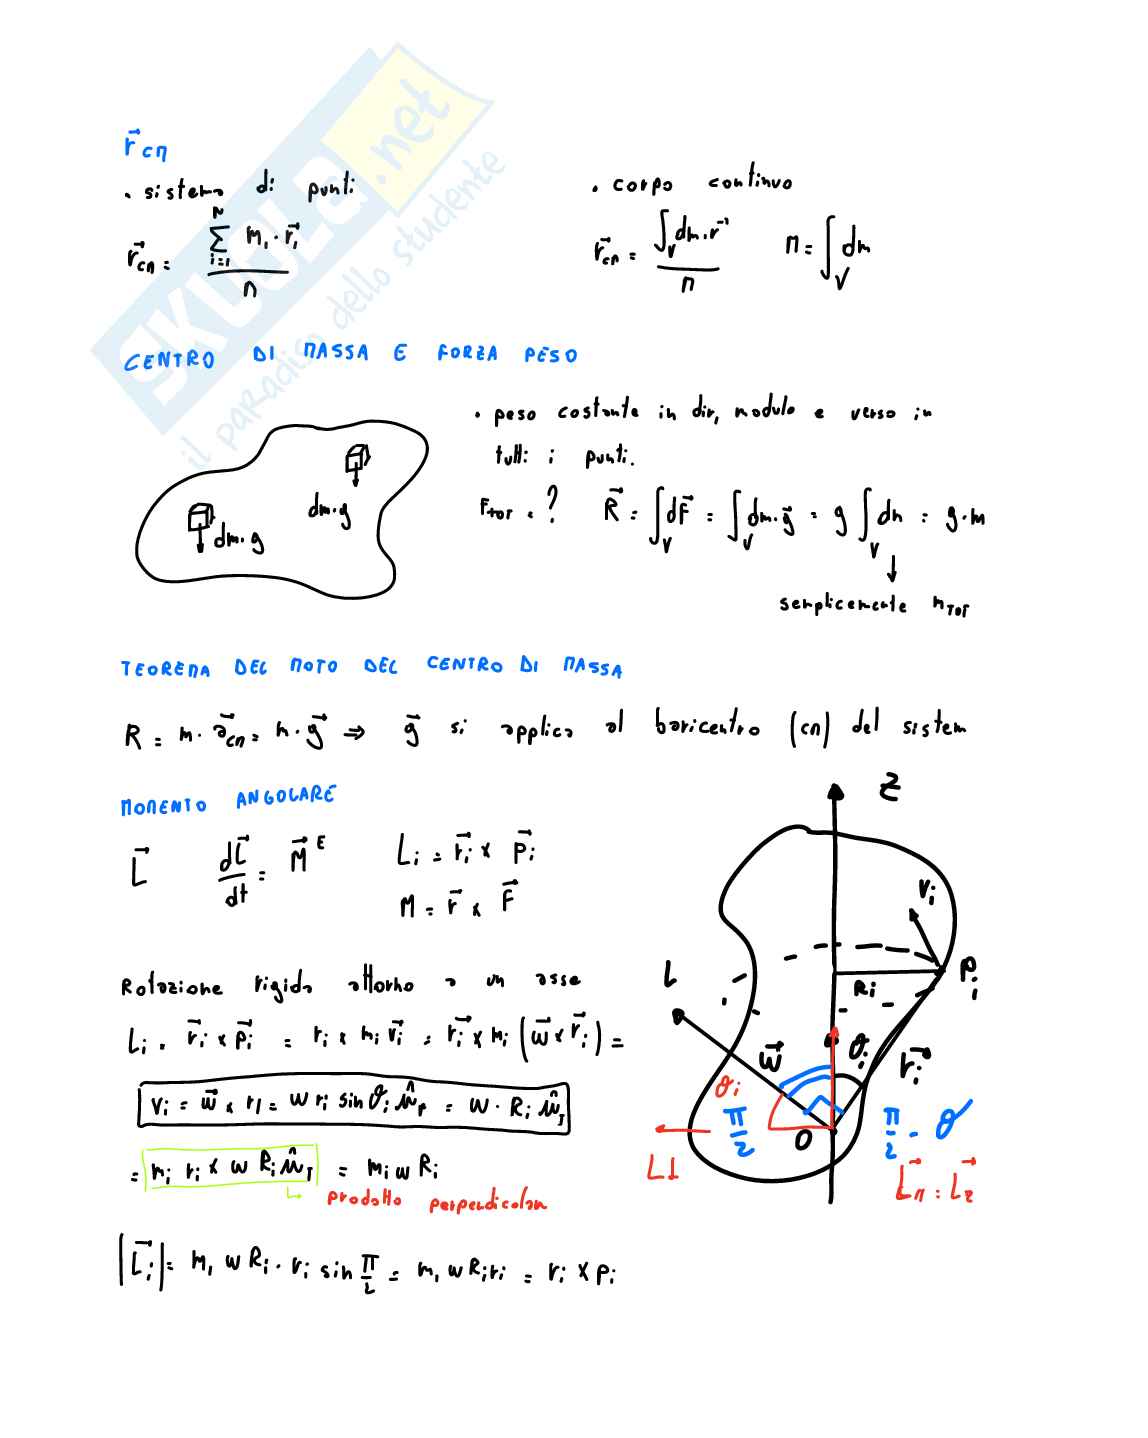 SKUOLA.net
il paradiso dello studente
r⃗ CM
• sistema di punti
r⃗CM = \frac{\sum_{i=1}^{N} m_i · r⃗_i}{M}
• corpo continuo
r⃗CM = \frac{∫_V dm · r⃗}{M}   M = ∫_V dm
CENTRO DI MASSA E FORZA PESO
• peso costante in dir, modulo e verso in
tutti i punti.
F_TOT = ?   R⃗ = ∫_V dF⃗ = ∫_V dm · g⃗ = g ∫_V dm = g · m
semplicemente m_TOT
dm · g
dm · g
TEOREMA DEL MOTO DEL CENTRO DI MASSA
R = m · a⃗_CM = m · g⃗ ⇒ g⃗ si applica al baricentro (CM) del sistem
MOMENTO ANGOLARE
L⃗   \frac{dL⃗}{dt} = M⃗^E   L_i = r⃗_i × p⃗_i
M = r⃗ × F⃗
Rotazione rigida attorno a un asse
L_i = r⃗_i × p⃗_i = r_i × m_i v⃗_i = r⃗_i × m_i (ω⃗ × r⃗_i) =
v_i = ω⃗ × r_i = ω r_i sin θ_i û_T = ω · R_i û_T
= m_i r_i × ω R_i û_T = m_i ω R_i
prodotto perpendicolare
|L⃗_i| = m_i ω R_i · r_i sin \frac{π}{2} = m_i ω R_i r_i = r_i × p_i
z
v_i
L
P_i
R_i
ω⃗
θ_i
r⃗_i
θ_i
\frac{π}{2}
O
\frac{π}{2} - θ
L⊥
L⃗_∥ = L⃗_z